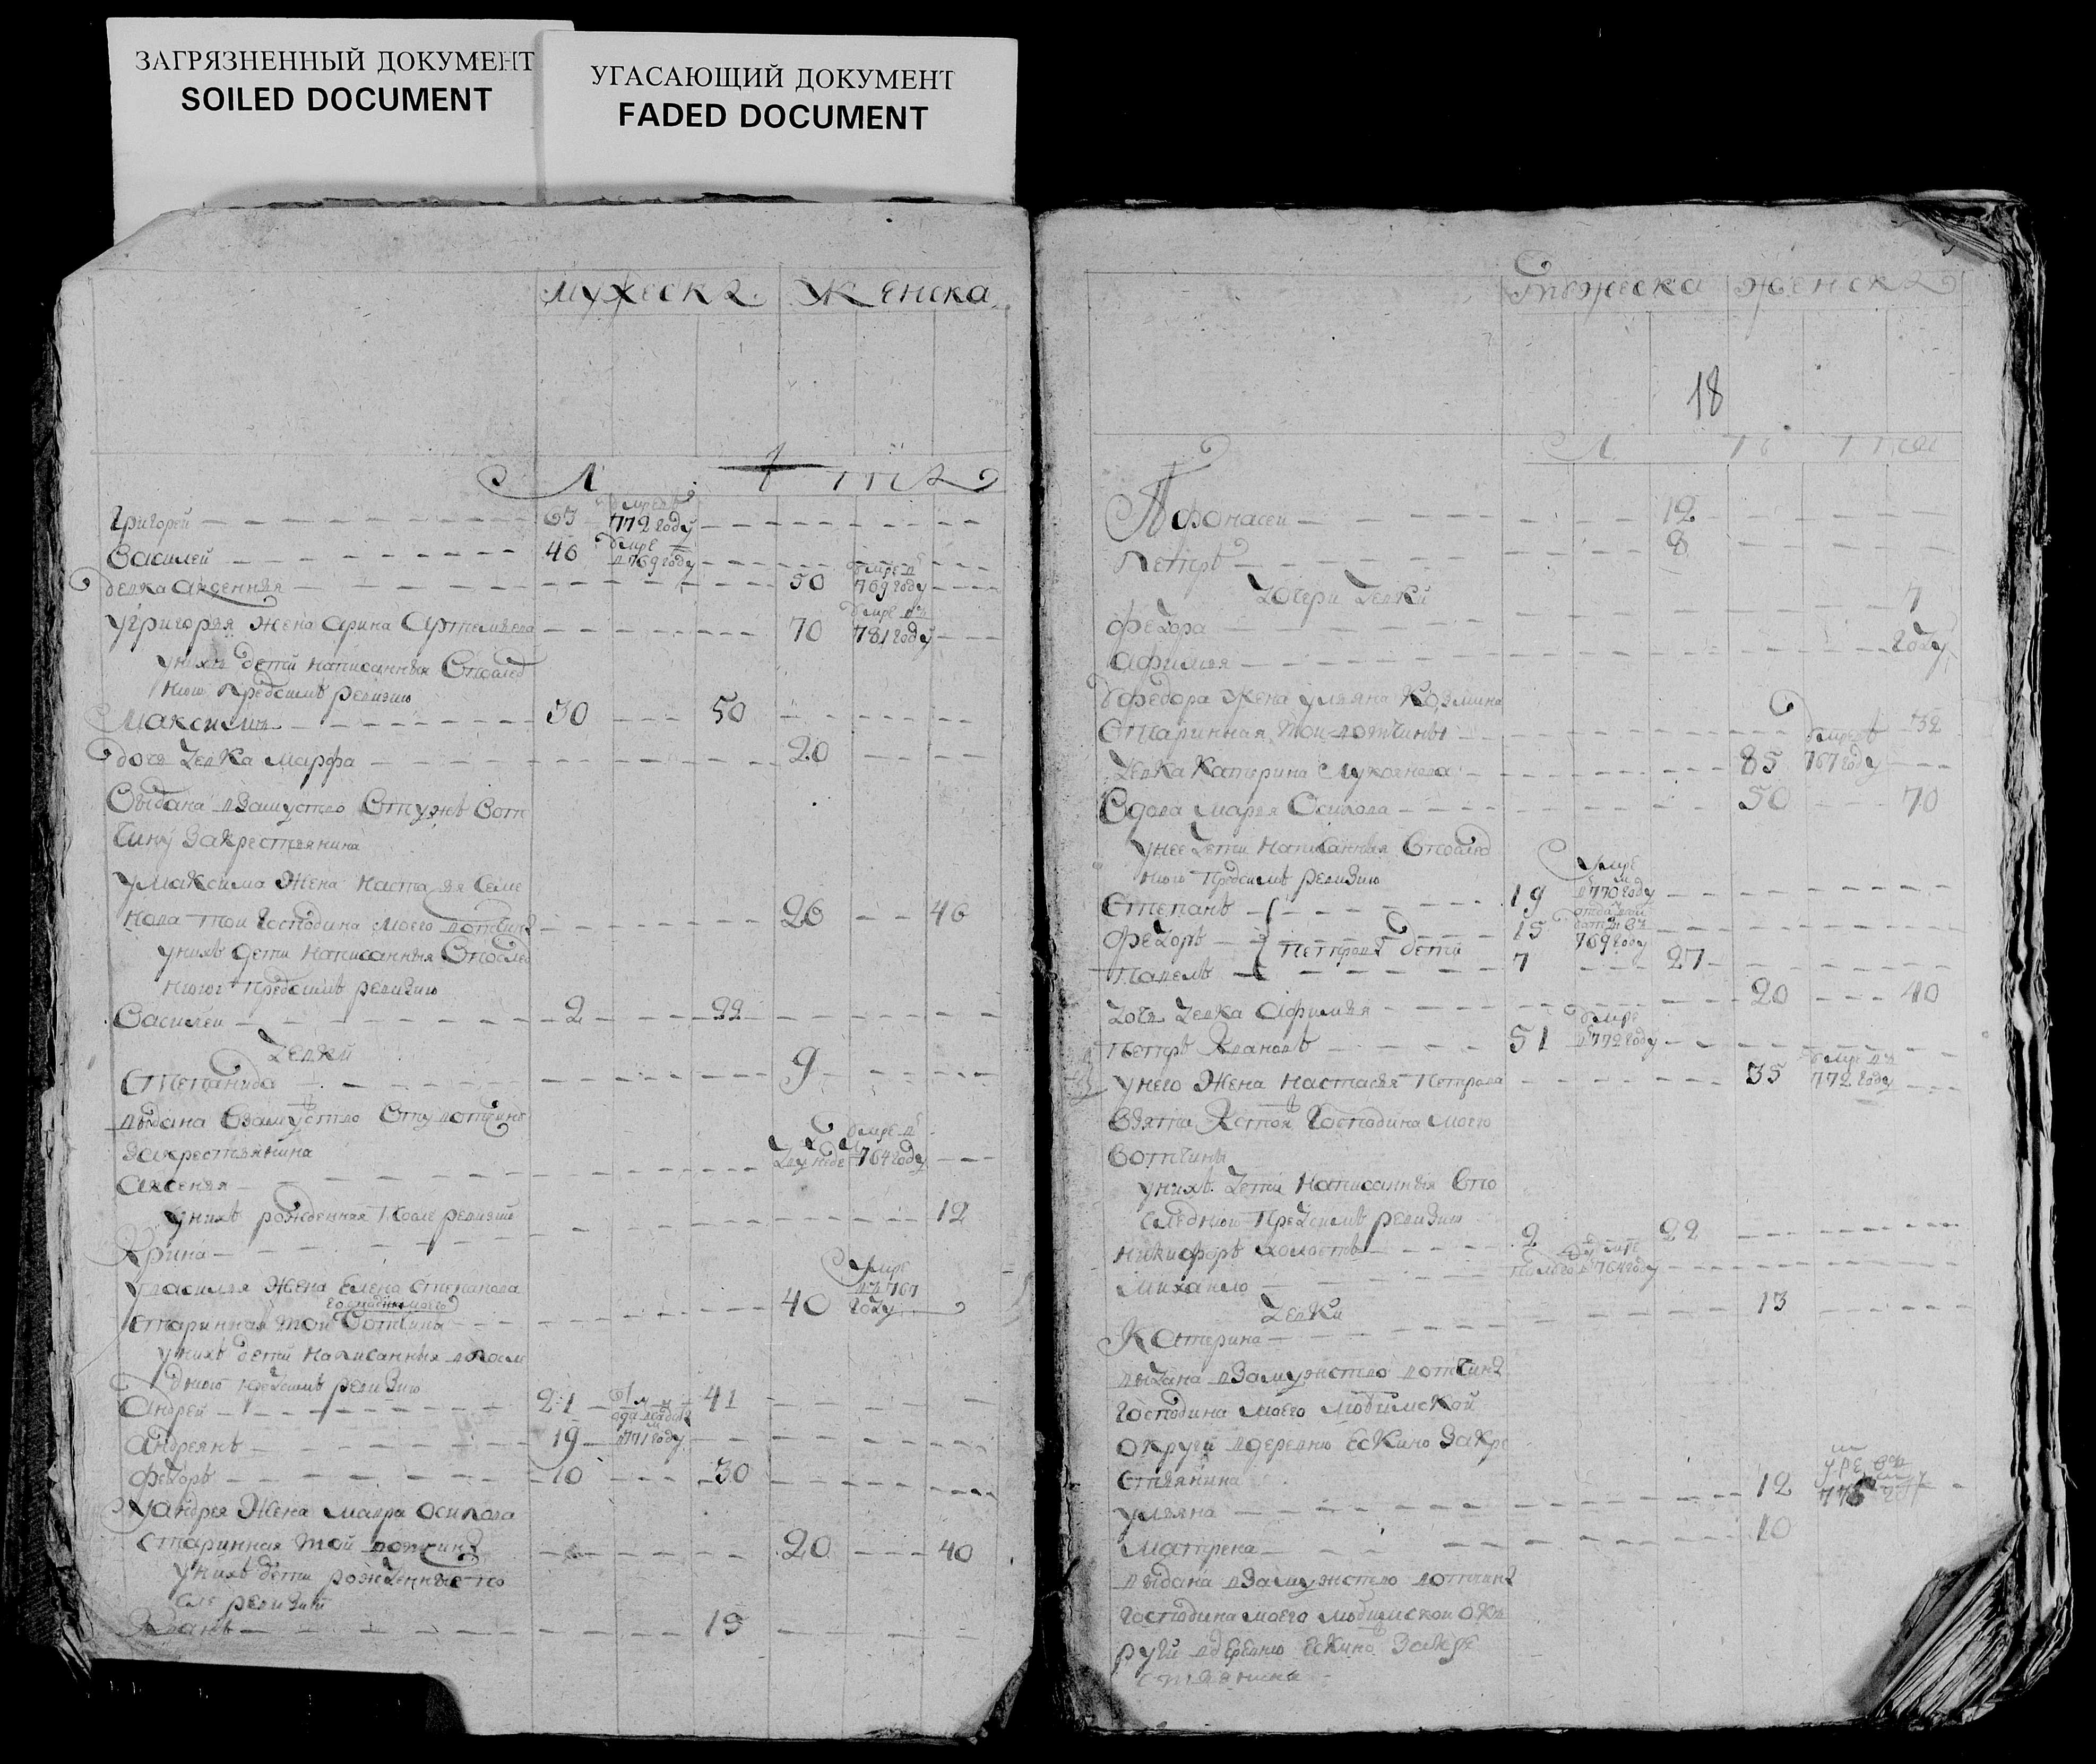 ЗАГРЯЗНЕННЫЙ ДОКУМЕНТ
SOILED DOCUMENT
УГАСАЮЩИЙ ДОКУМЕНТ
FADED DOCUMENT
мужеска женска
Л ѣ т а
Григорей 65 умре въ 772 году
Василей 46 умре в 769 году
девка Аксенья 50 умре в 769 году
у Григорья жена Арина Артемьева 70 умре въ 781 году
у нихъ дети написанныя в послед
нюю предсимъ ревизию
Максимъ 30 50
дочь девка Марфа 20
выдана в замуство в ту ж вот
чину за крестьянина
у Максима жена Настасья Семе
нова той господина моего вотчины 26 46
у нихъ дети написанныя в послед
нюю предсимъ ревизию
Василей 2 22
девки
Степанида 9
выдана в замуство в ту вотчину
за крестьянина
Аксенья дву недель умре в 764 году
у нихъ рожденная после ревизии
Ирина 12
у Василья жена Елена Степанова
господина моего
старинная той вотчины 40 умре въ 767 году
у нихъ дети написанныя в после
днюю предсимъ ревизию
Андрей 21 41
Андреянъ 19 в 771 году
Федоръ 10 30
у Андрея жена Мавра Осипова
старинная той вотчины 20 40
у нихъ дети рожденные по
сле ревизии
Иванъ 15
мужеска женска
18
Л ѣ т а
Афонасей 12
Петръ 8
дочери девки
Федора 7
Афимья году
у Федора жена Ульяна Козмина
старинная той вотчины 32
девка Катерина Лукоянова 85 умре въ 767 году
вдова Марья Осипова 50 70
у нее дети написанныя в послед
нюю предсимъ ревизию
Степанъ 19 умре в 770 году
Федоръ Петровы дети 15 769 году
Павелъ 7 27
дочь девка Афимья 20 40
Петръ Ивановъ 51 умре в 772 году
у него жена Настасья Петрова 35 умре въ 772 году
взята ис той господина моего
вотчины
у нихъ дети написанныя в по
следнюю предсимъ ревизию
Никифоръ холостъ 2 22
Михайло полугода умре в 764 году
девки
Катерина 13
выдана в замужство вотчины
господина моего Любимской
округи в деревню Ескино за кре
стьянина
Ульяна 12
Матрена 10
выдана в замужство вотчины
господина моего Любимской ок
руги в деревню Ескино за кре
стьянина